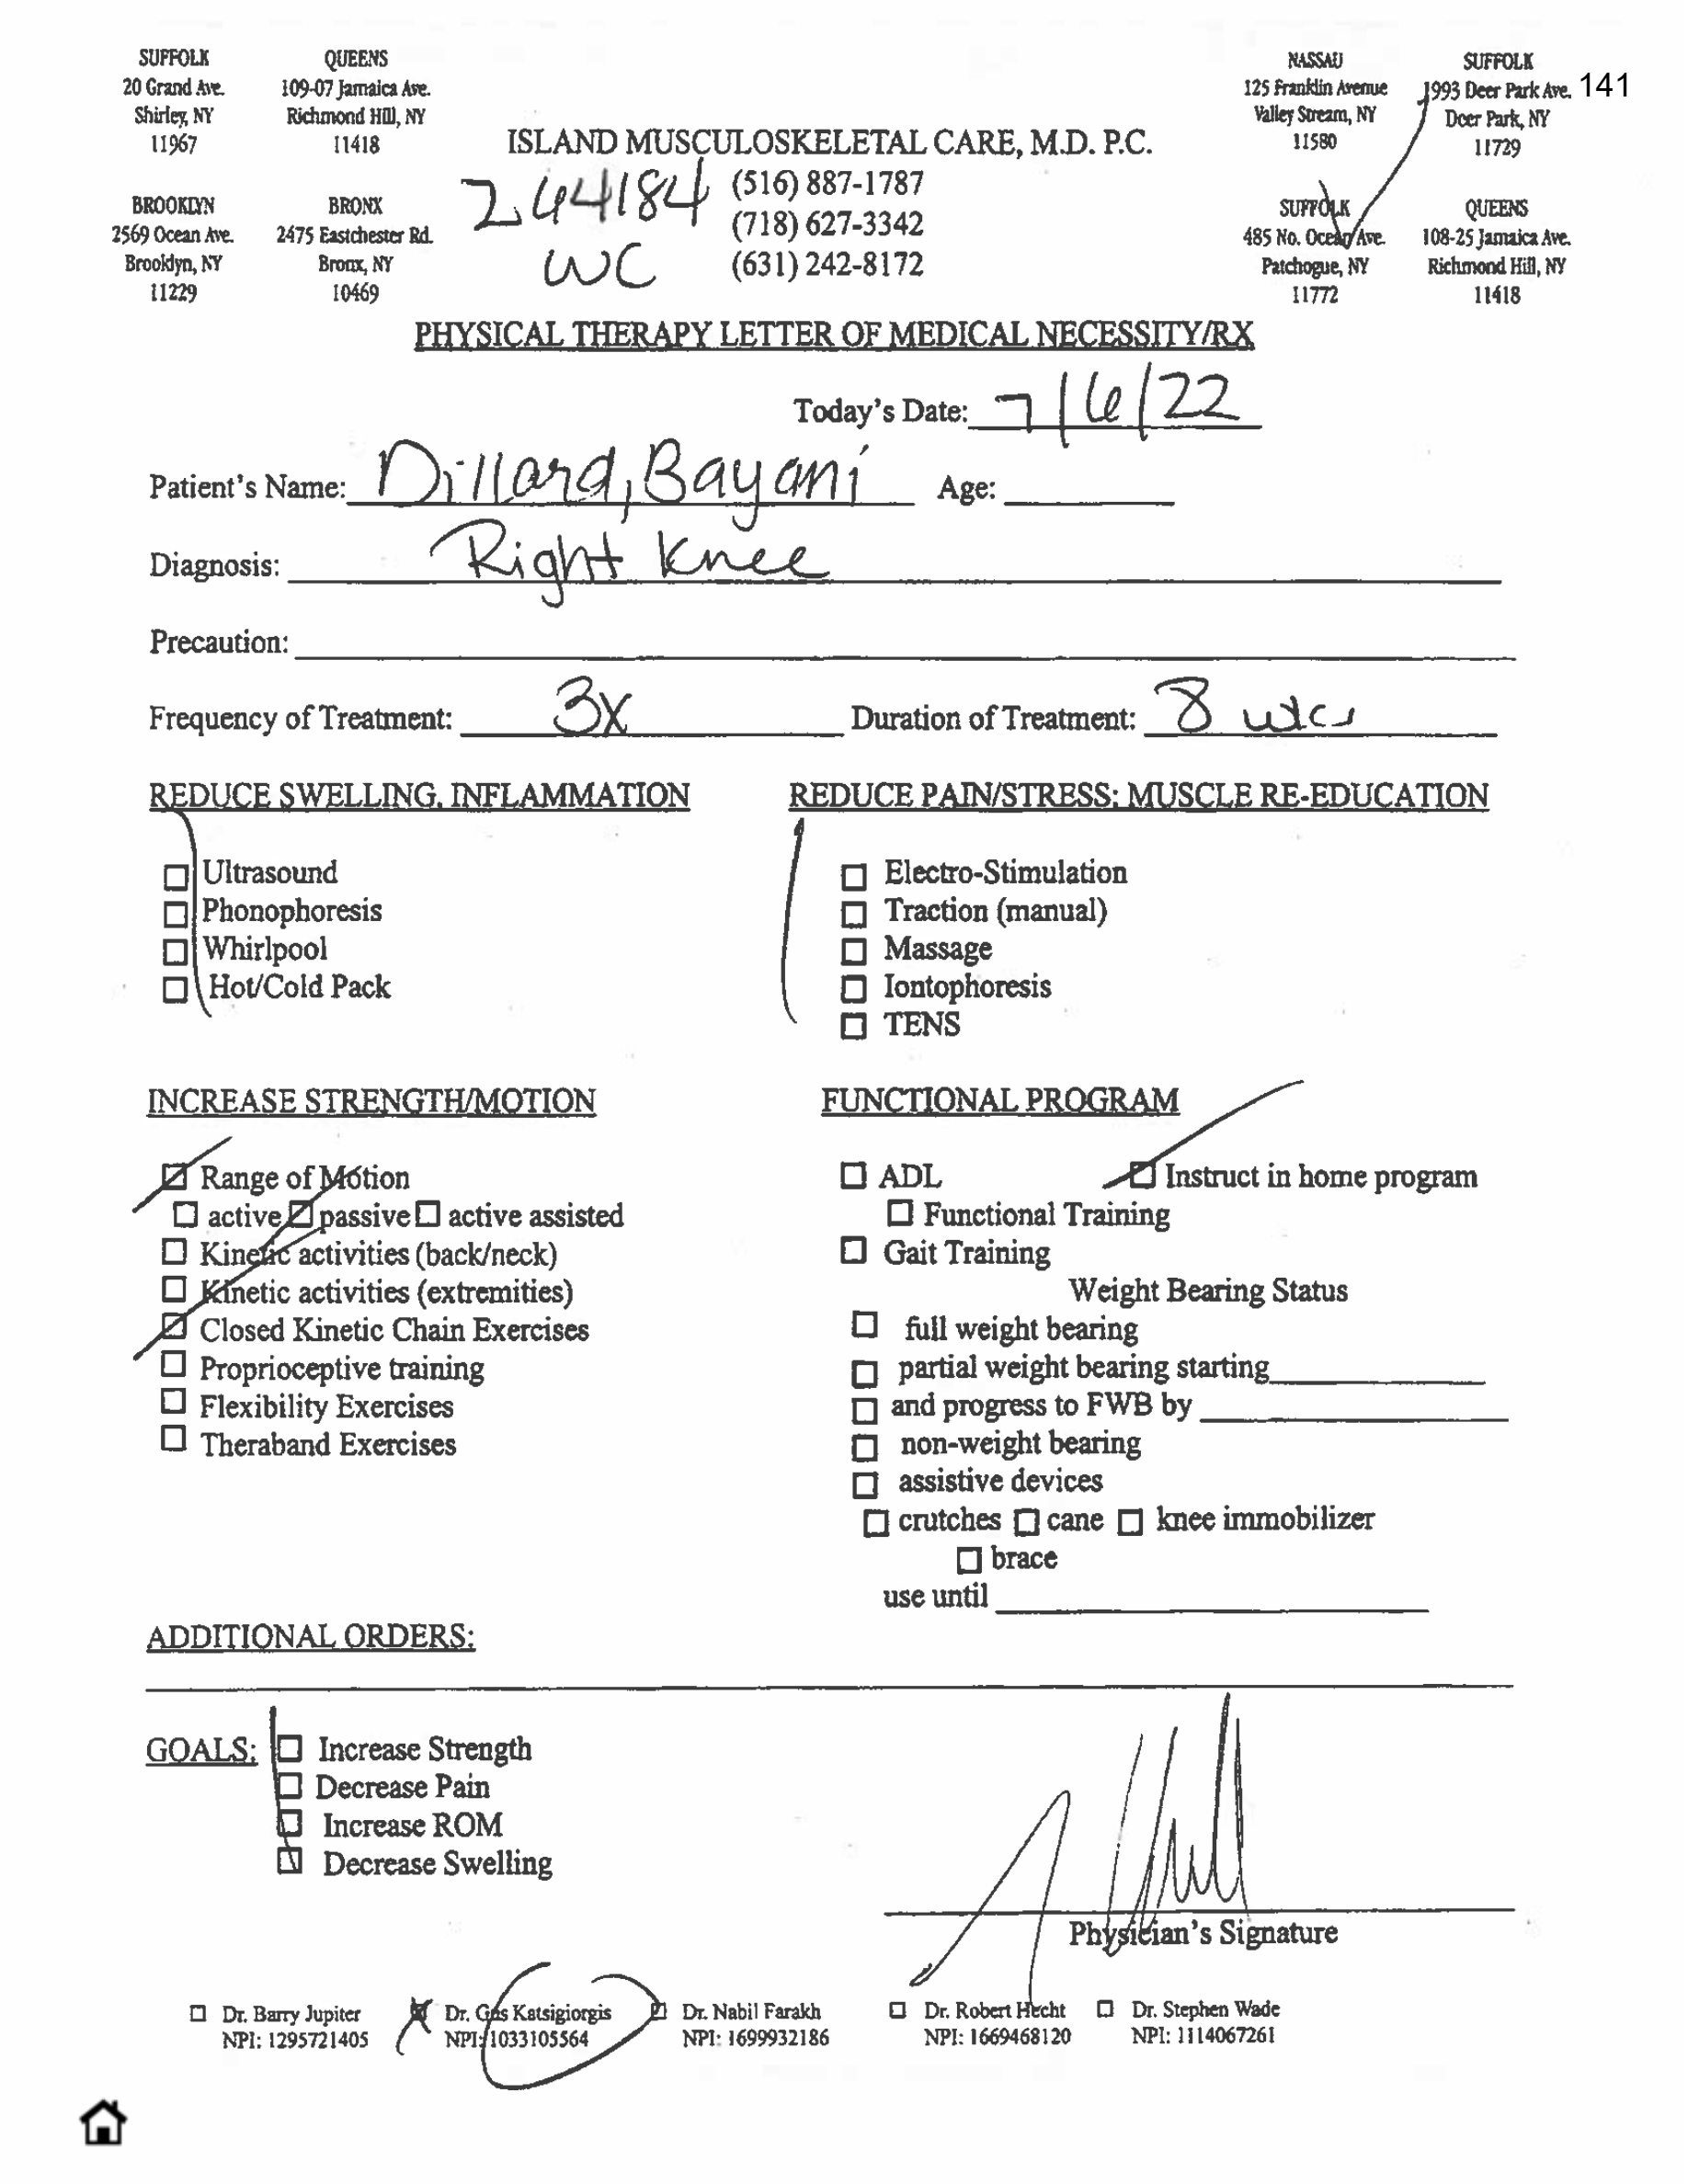 141
SUFFOLK
20 Grand Ave.
Shirley, NY
11967
QUEENS
109-07 Jamaica Ave.
Richmond Hill, NY
11418
NASSAU
125 Franklin Avenue
Valley Stream, NY
11580
SUFFOLK
1993 Deer Park Ave.
Deer Park, NY
11729
ISLAND MUSCULOSKELETAL CARE, M.D. P.C.
(516) 887-1787
(718) 627-3342
(631) 242-8172
264184
WC
BROOKLYN
2569 Ocean Ave.
Brooklyn, NY
11229
BRONX
2475 Eastchester Rd.
Bronx, NY
10469
SUFFOLK
485 No. Ocean Ave.
Patchogue, NY
11772
QUEENS
108-25 Jamaica Ave.
Richmond Hill, NY
11418
PHYSICAL THERAPY LETTER OF MEDICAL NECESSITY/RX
Today's Date: 7/6/22
Patient's Name: Dillard, Bayani Age:
Diagnosis: Right Knee
Precaution:
Frequency of Treatment: 3x Duration of Treatment: 8 wks
REDUCE SWELLING, INFLAMMATION
Ultrasound
Phonophoresis
Whirlpool
Hot/Cold Pack
REDUCE PAIN/STRESS; MUSCLE RE-EDUCATION
Electro-Stimulation
Traction (manual)
Massage
Iontophoresis
TENS
INCREASE STRENGTH/MOTION
Range of Motion
active passive active assisted
Kinetic activities (back/neck)
Kinetic activities (extremities)
Closed Kinetic Chain Exercises
Proprioceptive training
Flexibility Exercises
Theraband Exercises
FUNCTIONAL PROGRAM
ADL Instruct in home program
Functional Training
Gait Training
Weight Bearing Status
full weight bearing
partial weight bearing starting
and progress to FWB by
non-weight bearing
assistive devices
crutches cane knee immobilizer
brace
use until
ADDITIONAL ORDERS:
GOALS: Increase Strength
Decrease Pain
Increase ROM
Decrease Swelling
Physician's Signature
Dr. Barry Jupiter
NPI: 1295721405
Dr. Gus Katsigiorgis
NPI: 1033105564
Dr. Nabil Farakh
NPI: 1699932186
Dr. Robert Hecht
NPI: 1669468120
Dr. Stephen Wade
NPI: 1114067261